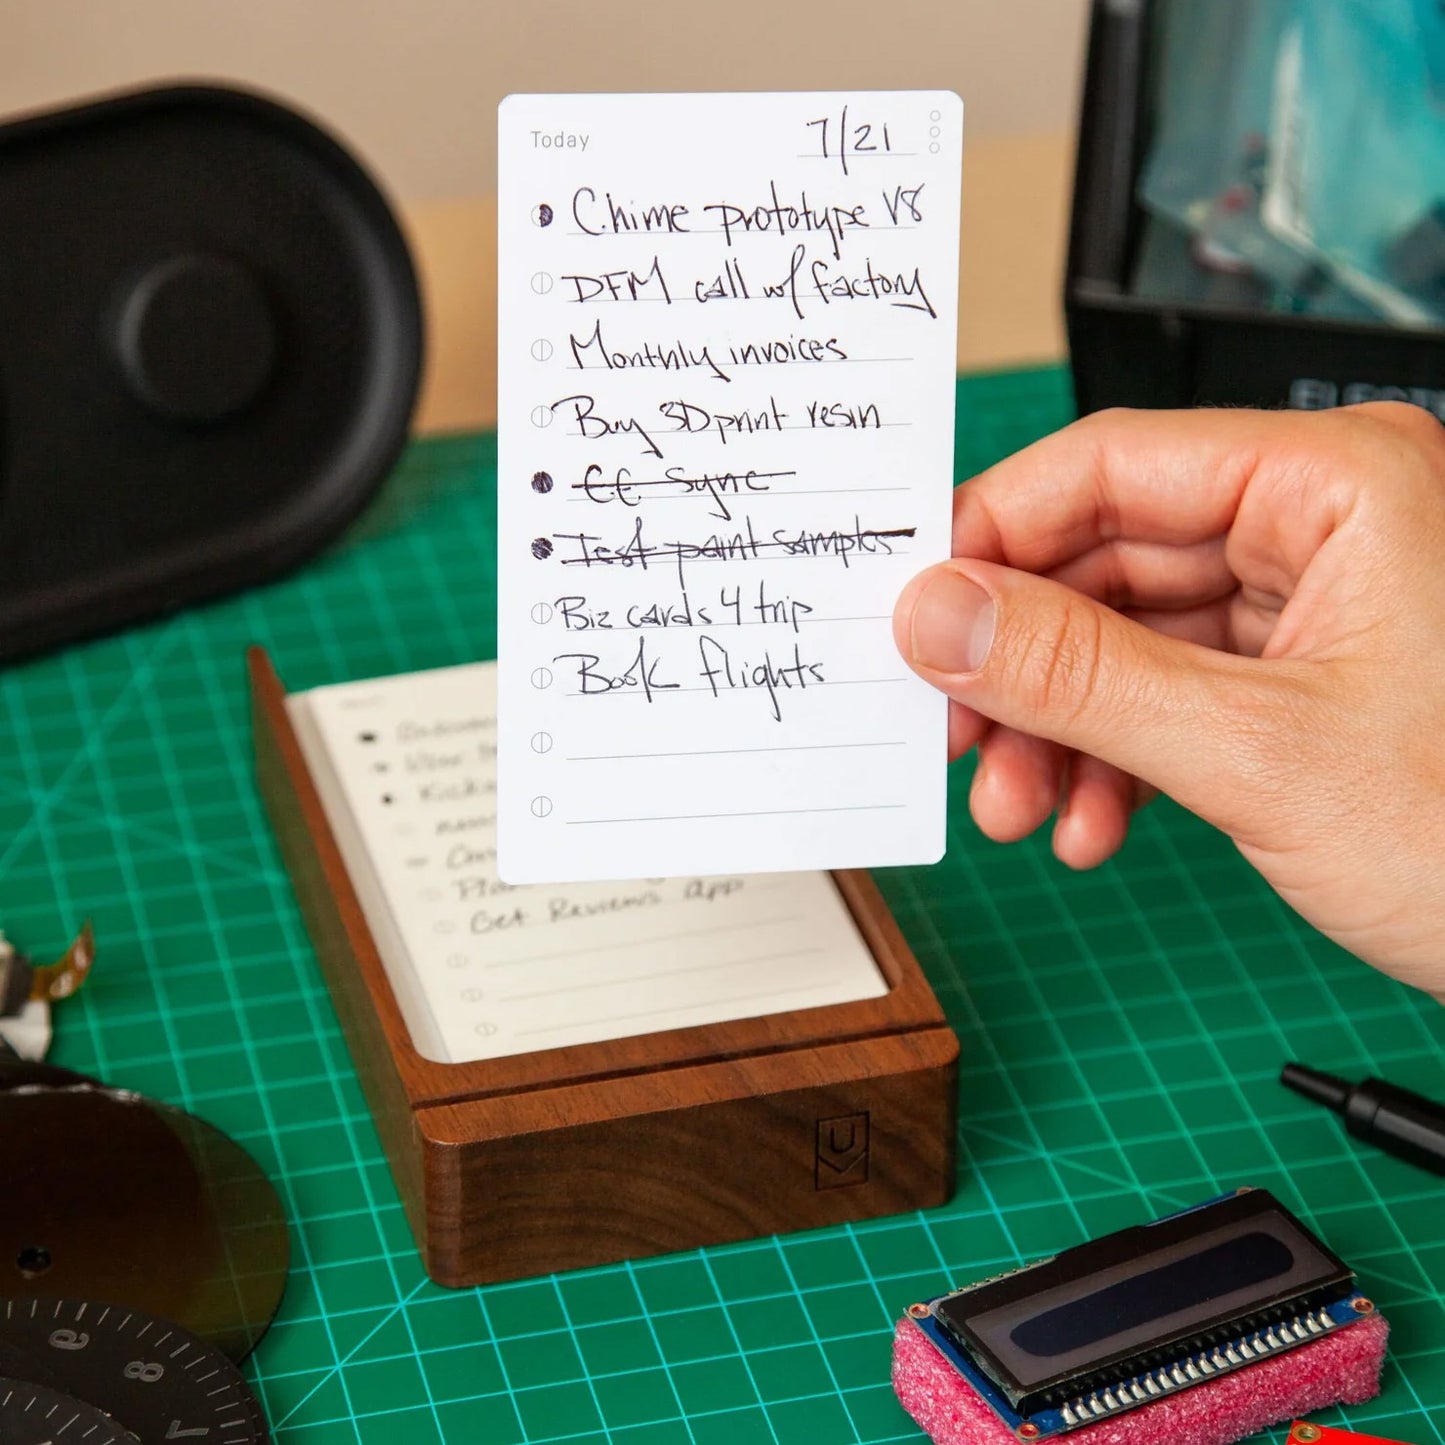 Today 7/21
Chime prototype V8
DFM call w/ factory
Monthly invoices
Buy 3D print resin
EE Sync
Test paint samples
Biz cards 4 trip
Book flights
Get Reviews App
U
ELECT
6
8
7